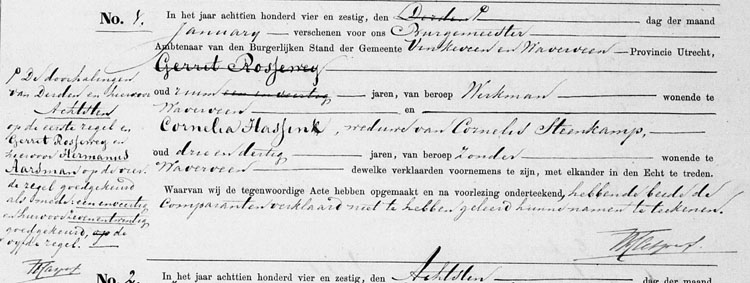 No. 1. In het jaar achttien honderd vier en zestig, den Derden dag der maand
January verschenen voor ons Burgemeester
Ambtenaar van den Burgerlijken Stand der Gemeente Vinkeveen en Waverveen Provincie Utrecht,
Gerret Rosseweg
oud ruim een en veertig jaren, van beroep Werkman wonende te
Waverveen en
Cornelia Hassink, weduwe van Cornelis Steenkamp,
oud drie en dertig jaren, van beroep Zonder wonende te
Waverveen dewelke verklaarden voornemens te zijn, met elkander in den Echt te treden.
Waarvan wij de tegenwoordige Acte hebben opgemaakt en na voorlezing onderteekend, hebbende beide de
Comparanten verklaard niet te hebben geleerd hunne namen te teekenen.
De doorhalingen
van Derden en hiervoor
Achtsten
op de eerste regel en
Gerret Rosseweg en
hiervoor Hermanus
Aarsman op de vier
de regel goedgekeurd
als mede een en veertig
en hiervoor zeven en twintig
goedgekeurd, op de
regel.
No. 2. In het jaar achttien honderd vier en zestig, den Achtsten dag der maand